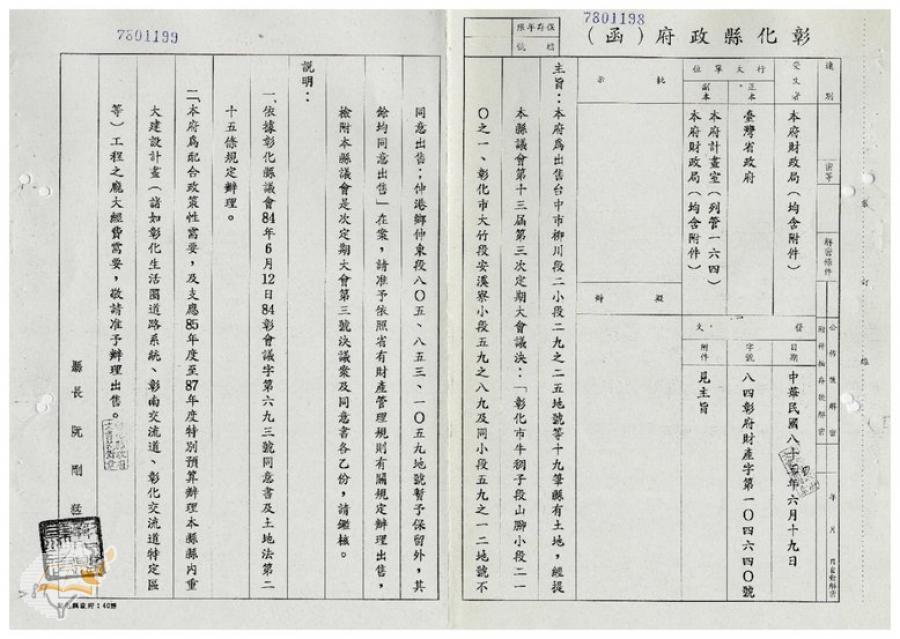 7801198
彰化縣政府（函）
保存年限
檔號
速別
密等
解密條件
公布後解密
附件抽存後解密
年 月 日自動解密
受文者
本府財政局（均含附件）
行文單位
正本
臺灣省政府
副本
本府計畫室（列管一六四）
本府財政局（均含附件）
批示
擬辦
發文
日期
中華民國八十四年六月十九日
字號
八四彰府財產字第一〇四六四〇號
附件
見主旨
裝
訂
線
主旨：本府為出售台中市柳川段二小段二九之二五地號等十九筆縣有土地，經提
本縣議會第十三屆第三次定期大會議決：「彰化市牛稠子段山腳小段二一
〇之一、彰化市大竹段安溪寮小段五九之八九及同小段五九之一二地號不
7801199
同意出售；伸港鄉伸東段八〇五、八五三、一〇五九地號暫予保留外，其
餘均同意出售」在案，請准予依照省有財產管理規則有關規定辦理出售，
檢附本縣議會是次定期大會第三號決議案及同意書各乙份，請鑑核。
說明：
一、依據彰化縣議會84年6月12日84彰會議字第六九三號同意書及土地法第二
十五條規定辦理。
二、本府為配合政策性需要，及支應85年度至87年度特別預算辦理本縣縣內重
大建設計畫（諸如彰化生活圈道路系統、彰南交流道、彰化交流道特定區
等）工程之龐大經費需要，敬請准予辦理出售。
縣長 阮剛猛